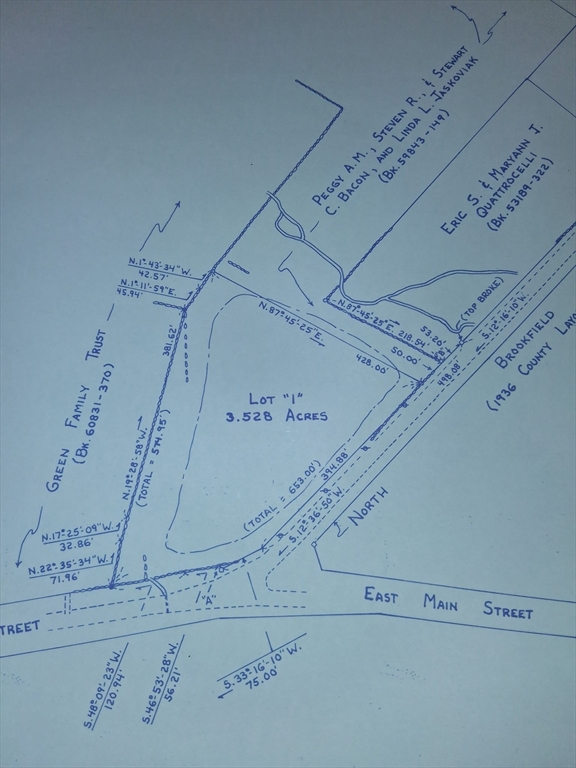 PEGGY A.M., STEVEN R., & STEWART
C. BACON, AND LINDA L. JASKOVIAK
(BK. 59843-149)
ERIC S. & MARYANN J.
QUATTROCELLI
(BK. 53189-322)
N.1°-43'-34"W.
42.57'
N.1°-11'-59"E.
45.94'
N.87°-45'-25"E.
428.00'
N.87°-45'-25"E. 218.54'
53.20'
50.00'
(TOP BROKE)
S.12°-16'-10"W.
498.08'
BROOKFIELD
(1936 COUNTY LAYO
GREEN FAMILY TRUST
(BK. 60831-370)
381.62'
N.19°-28'-58"W.
(TOTAL = 574.95')
LOT "1"
3.528 ACRES
(TOTAL = 653.00')
394.88'
S.12°-36'-50"W.
NORTH
N.17°-25'-09"W.
32.86'
N.22°-35'-34"W.
71.96'
"A"
TREET
EAST MAIN STREET
S.48°-09'-23"W.
120.94'
S.46°-53'-28"W.
56.21'
S.33°-16'-10"W.
75.00'